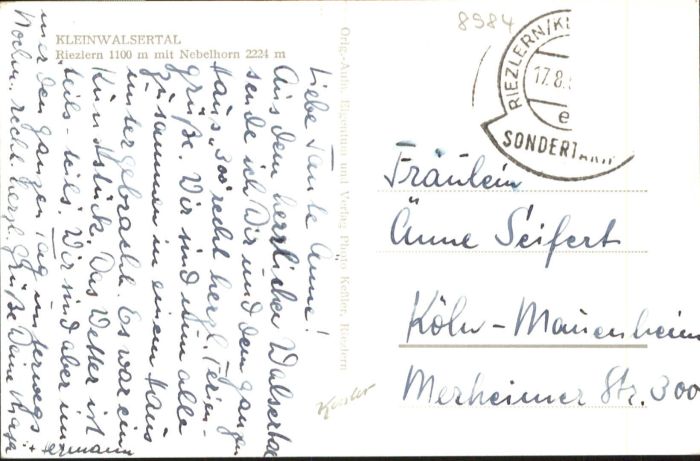 KLEINWALSERTAL
Riezlern 1100 m mit Nebelhorn 2224 m
8984
RIEZLERN/KL
17.8.
e
SONDERTARIF
Liebe Tante Änne!
Aus dem herrlichen Walsertal
sende ich Dir und dem ganzen
Haus „300" recht herzl. Ferien-
grüße. Wir sind nun alle
zusammen in einem Haus
untergebracht. Es war ein
Kunststück. Das Wetter ist
teils-teils. Wir sind aber im-
mer den ganzen Tag unterwegs
Nochm. recht herzl. Grüße Deine
Hermann
Orig.-Aufn. Eigentum und Verlag Photo Keßler, Riezlern
Kessler
Fräulein
Änne Seifert
Köln-Mauenheim
Merheimer Str. 300